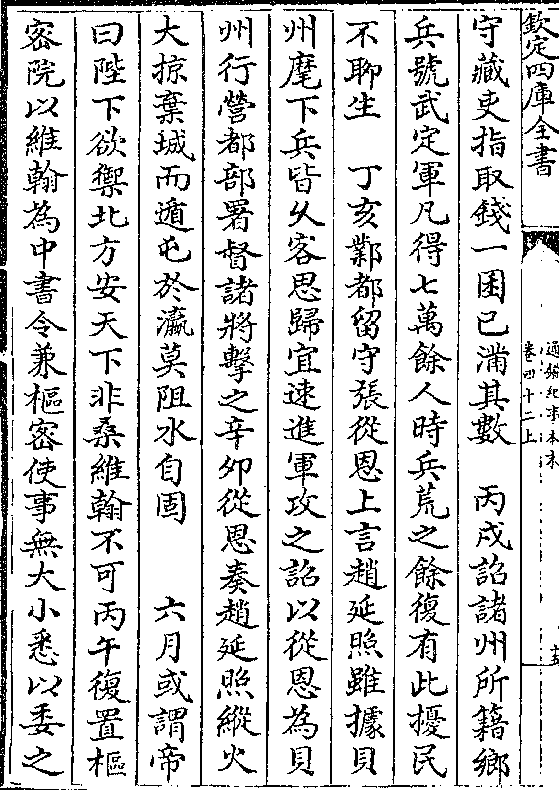 欽定四庫全書
通鑑紀事本末
卷四十二上
守藏吏指取錢一囷已滿其數　丙戌詔諸州所籍鄉
兵號武定軍凡得七萬餘人時兵荒之餘復有此擾民
不聊生　丁亥鄴都留守張從恩上言趙延照雖據貝
州麾下兵皆乆客思歸宜速進軍攻之詔以從恩為貝
州行營都部署督諸將擊之辛夘從恩奏趙延照縱火
大掠棄城而遁屯於瀛莫阻水自固　六月或謂帝
曰陛下欲禦北方安天下非桑維翰不可丙午復置樞
宻院以維翰為中書令兼樞宻使事無大小悉以委之